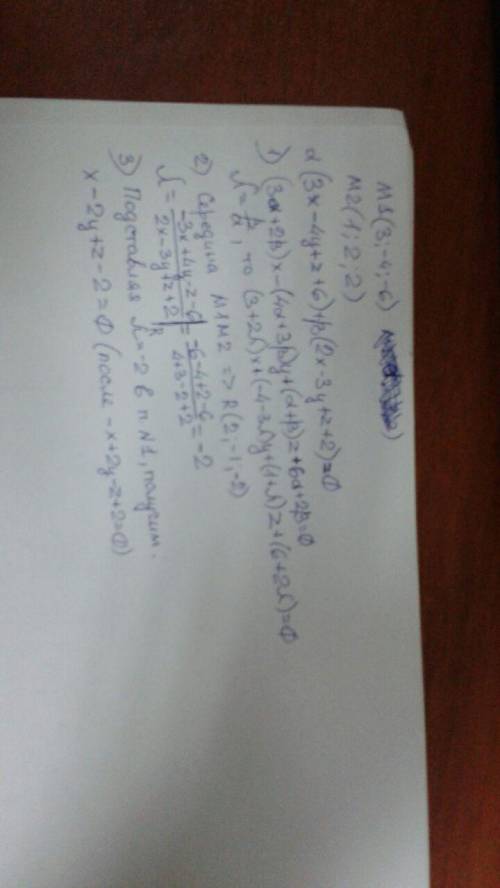 M1(3;-4;-6)
M2(1; 2; 2)
α(3x-4y+z+6)+β(2x-3y+z+2)=0
1) (3α+2β)x-(4α+3β)y+(α+β)z+6α+2β=0
λ=β/α, то (3+2λ)x+(-4-3λ)y+(1+λ)z+(6+2λ)=0
2) Середина M1M2 => R(2;-1;-2)
λ=(-3x+4y-z-6)/(2x-3y+z+2)|R=(-6-4+2-6)/(4+3-2+2)=-2
3) Подставляя λ=-2 в п N1, получим.
x-2y+z-2=0 (после -x+2y-z+2=0)